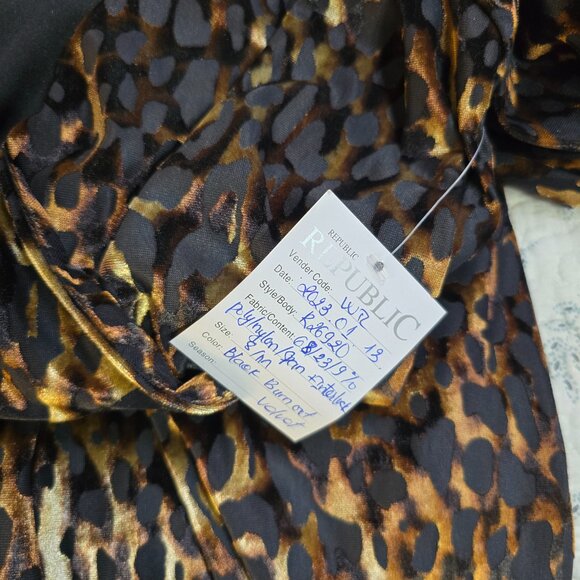 REPUBLIC
REPUBLIC
Vender Code: WR
Date: 2023.01.13
Style/Body: R26920
Fabric/Content: 68/23/9%
Poly/nylon/Span
Size: 8/M
Color: Black Burnout
Season: Velvet